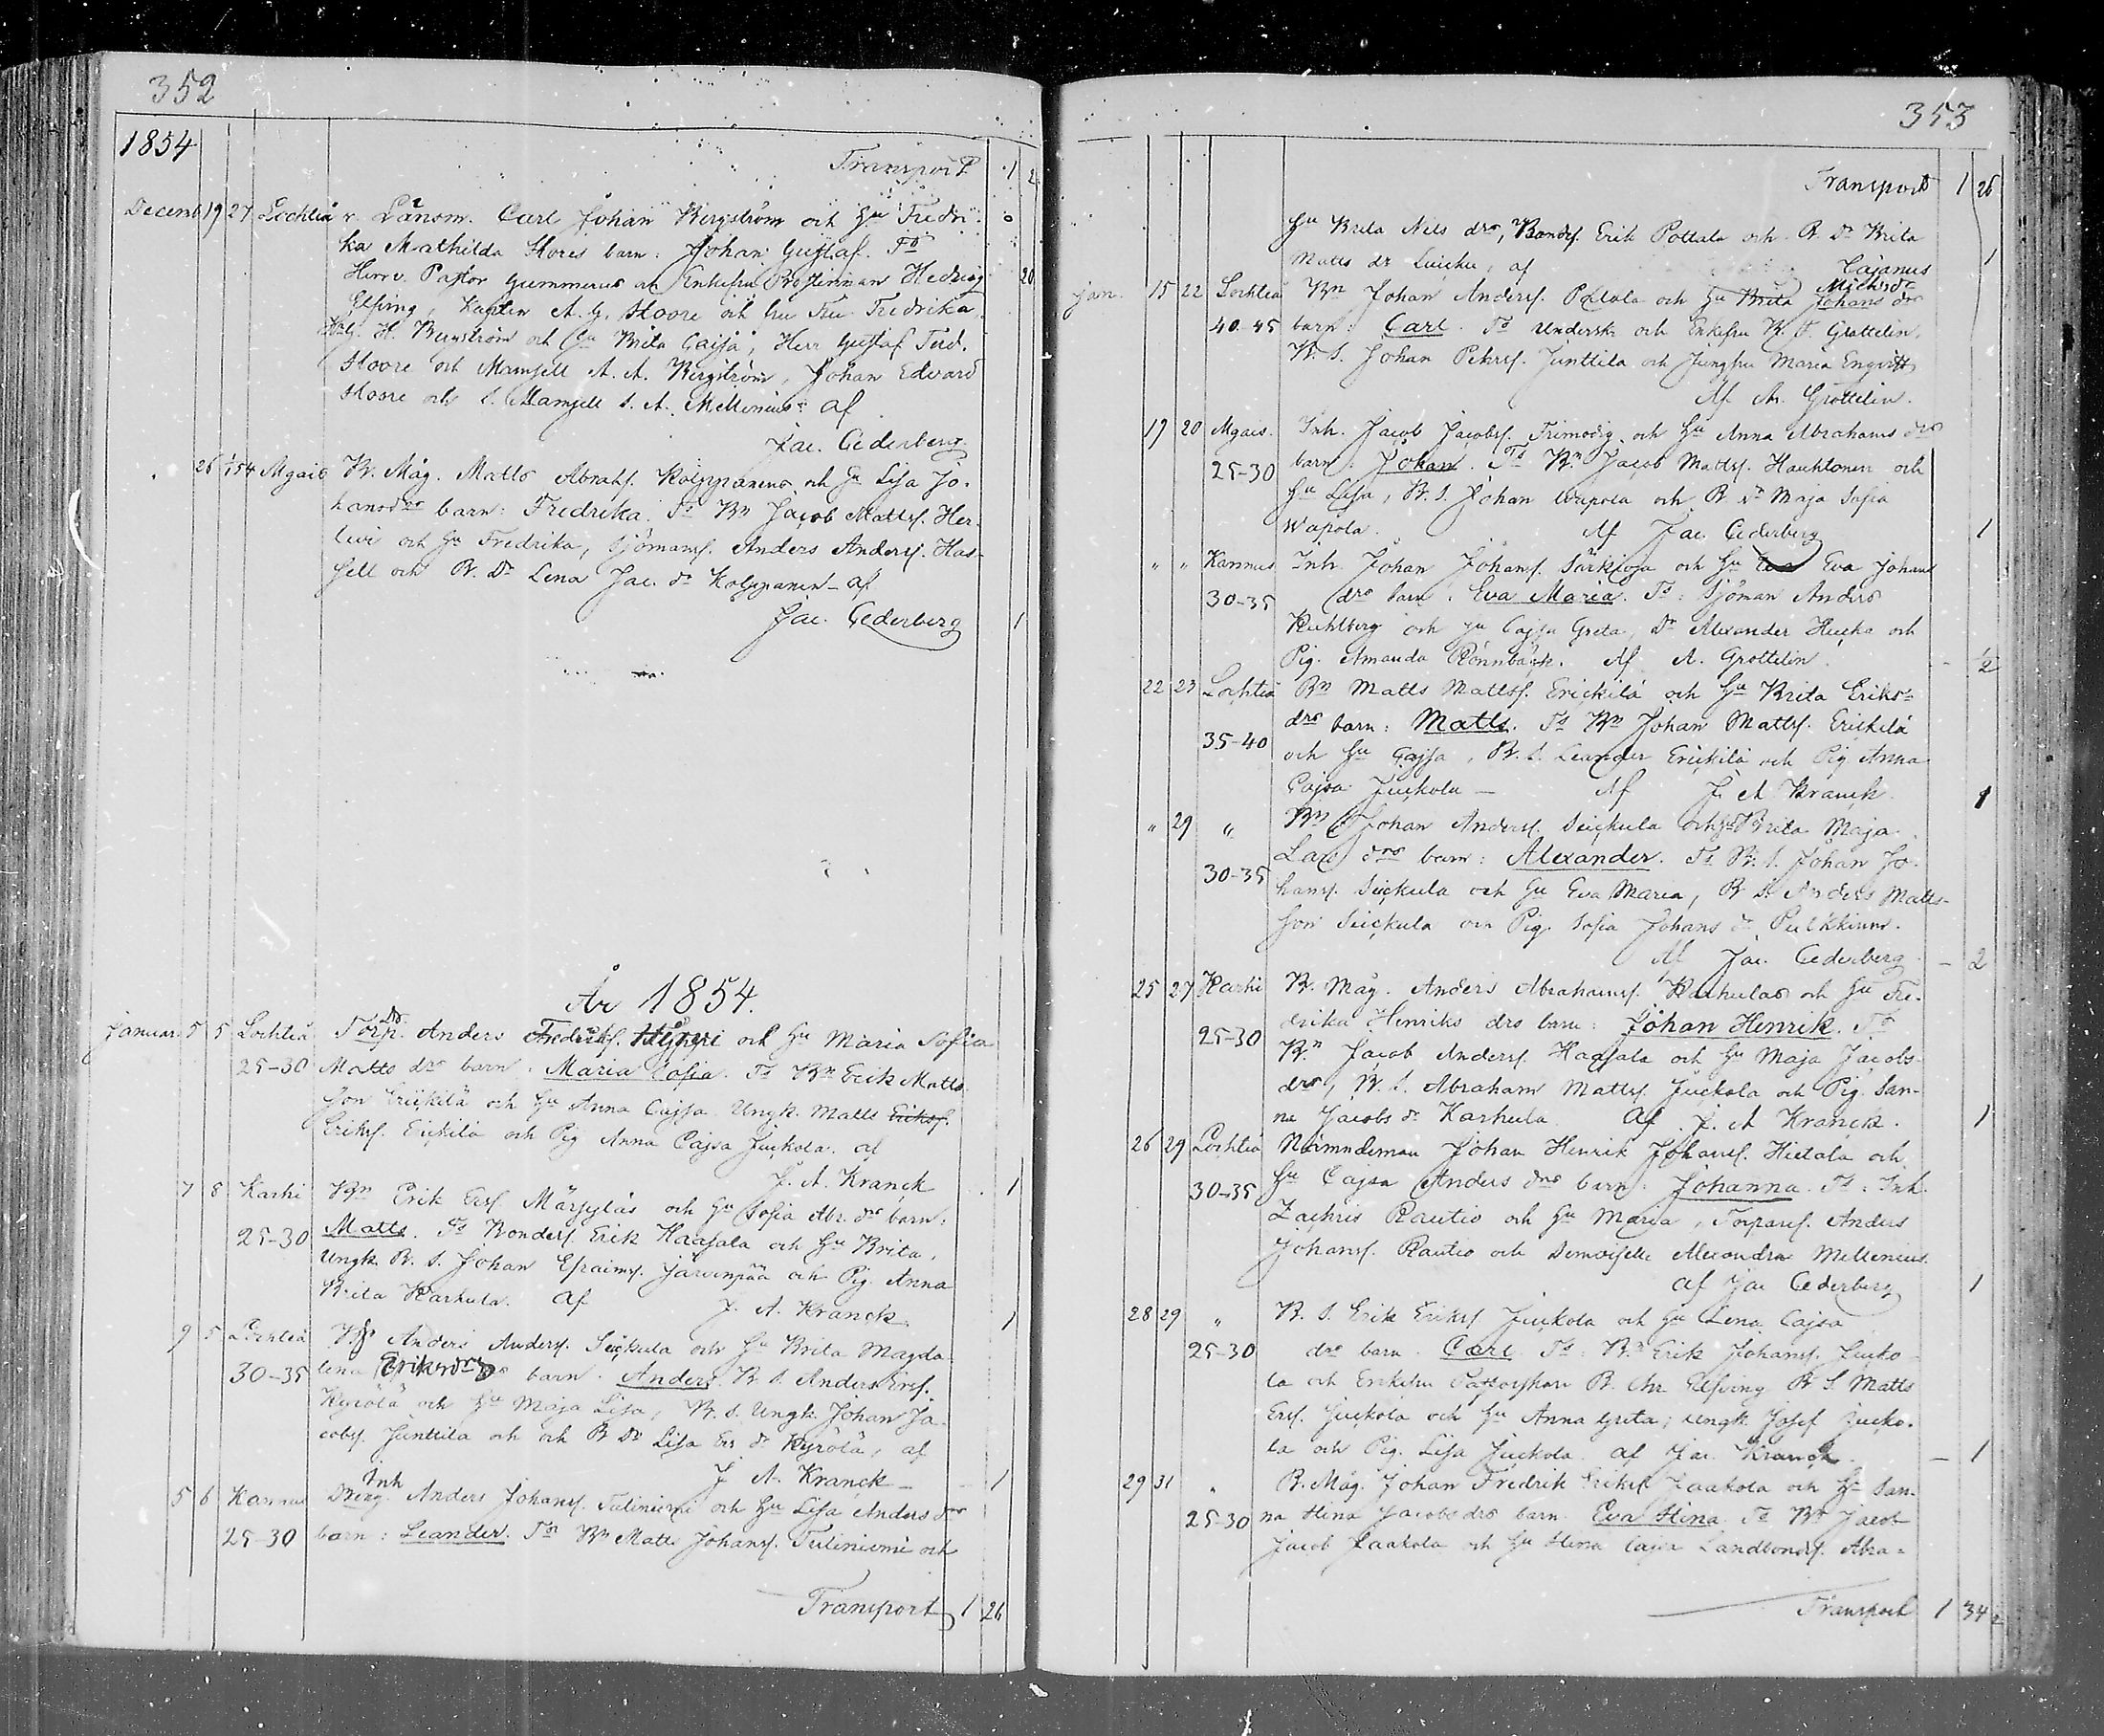 352
1854
Transport 1
Decemb 19 27 Lochteå v. Länsm. Carl Johan Bergström och Hu Fredri-
ka Mathilda Hores barn: Johan Gustaf. Ts
Herr v. Pastor Gummerus och Enkefru Prostinnan Hedvig 20
Elfving, Kapten A. G. Hoore och fru Fredrika
H. Bergström och Hu Brita Caisa, Herr Gustaf Ferd.
Hoore och Mamsell A. A. Bergström, Johan Edvard
Hoore och Mamsell S. A. Mellenius: af
Jac. Cederberg
26 1/54 Mgais B. Måg. Matts Abrahs. Kolppanens och Hu Lisa Jo-
hansdrs barn: Fredrika. Ts Bn Jacob Mattss. Her-
levi och Hu Fredrika, Sjömans. Anders Anderss. Has-
sell och B. Dr Lena Jac. dr Kolppanen - af
Jac. Cederberg 1
År 1854.
Januari 5 5 Lochteå Torp. Anders Fredrikss. och Hu Maria Sofia
25-30 Matts drs barn: Maria Sofia. Ts Bn Erik Matts-
son Erickilä och Hu Anna Cajsa Ungk. Matts Erikss.
Erikss. Erickilä och Pig Anna Cajsa Juckola. af
J. A. Kranck 1
7 8 Karhi Bn Erik Erss. Märsyläs och Hu Sofia Abr. drs barn:
25-30 Matts. Ts Bonders. Erik Haasala och Hu Brita,
Ungk. B. S. Johan Efraims. Järvenpää och Pig. Anna
Brita Karhula. af J. A. Kranck. 1
9 5 Lochteå Anders Anderss. Sieckula och Hu Brita Magda
30-35 lena Eriksdrs barn. Anders. B. S. Anders Erss.
Kyrölä och Hu Maja Lisa, B. S. Ungk. Johan Ja-
cobs. Junttila och och B Dr Lisa Ers dr Kyrölä, af
J. A. Kranck - 1
Inh
5 6 Kannus Dreng. Anders Johanss. Tuliniemi och Hu Lisa Anders drs
25-30 barn: Leander. Ts Bn Matts Johanss. Tuliniemi och
Transport 1 26
353
Transport 1 26
Hu Brita Nils drs, Bonds. Erik Pottala och B. Dr Brita
Matts dr, af Cajanus 1
Michsdr
Jan. 15 22 Lochteå Bn Johan Anderss. Pottala och Hu Brita Johans drs
40-45 barn: Carl. Ts Undersk. och Enkefru B. J. Grottelin,
B. S. Johan Petrss. Junttila och Jungfru Maria Engvist
Af A. Grottelin.
19 20 Mgais. Inh. Jacob Jacobss. Trimodig och Hu Anna Abrahams drs
25-30 barn: Johan. Ts Bn Jacob Mattss. Hauhtonen och
Hu Lisa, B. S. Johan Wapola och B Dr Maja Sofia
Wapola. Af Jac. Cederberg 1
" " Kannus Inh. Johan Johanss. Särkioja och Hu Eva Johans
30-35 drs barn: Eva Maria. Ts: Sjöman Anders
Kuhlberg och Hu Cajsa Greta, Dr Alexander Hucka och
Pig. Amanda Rönnbäck. Af A. Grottelin. - 2
22 23 Lochteå Bn Matts Mattss. Erickilä och Hu Brita Eriks-
drs barn: Matts. Ts Bn Johan Mattss. Erickilä
35-40
och Hu Cajsa, B. S. Leander Erickilä och Pig. Anna
Cajsa Juckola - Af J. A Kranck. 1
" 29 " Bn Johan Anderss. Sieckula och Hu Brita Maja
Lars drs barn: Alexander. Ts B. S. Johan Jo-
30-35
hanss. Sieckula och Hu Eva Maria, B. S. Anders Matts-
son Sieckula och Pig. Sofia Johans dr Pulkkinen.
Af Jac. Cederberg - 2
25 27 Karhi B. Måg. Anders Abrahamss. Karhulas och Hu Fre-
drika Henriks drs barn: Johan Henrik. Ts
25-30
Bn Jacob Anderss. Haasala och Hu Maja Jacobs-
drs, B. S. Abraham Mattss. Juckola och Pig. San-
na Jacobs dr Karhula. Af J. A Kranck. 1
26 29 Lochteå Nämndeman Johan Henrik Johanss. Hietala och
30-35 Hu Cajsa Anders drs barn: Johanna. Ts: Inh.
Zachris Rautio och Hu Maria, Torpares. Anders
Johanss. Rautio och Demoiselle Alexandra Mellenius.
af Jac Cederberg 1
28 29 " B. S. Erik Erikss Juckola och Hu Lena Cajsa
25-30 drs barn. Carl. Ts: Bn Erik Johanss. Jucko-
la och Enkefru Pastorskan B. Chr. Elfving B. S. Matts
Erss. Juckola och Hu Anna Greta; Ungk. Josef Jucko-
la och Pig. Lisa Juckola. af Jac. Kranck. - 1
29 31 " B. Måg. Johan Fredrik Erikss. Jaakola och Hu San-
25-30 na Stina Jacobs drs barn Eva Stina Ts Bn Jacob
Jacob Jaakola och Hu Stina Cajsa Landbonds. Abra-
Transport 1 34 2